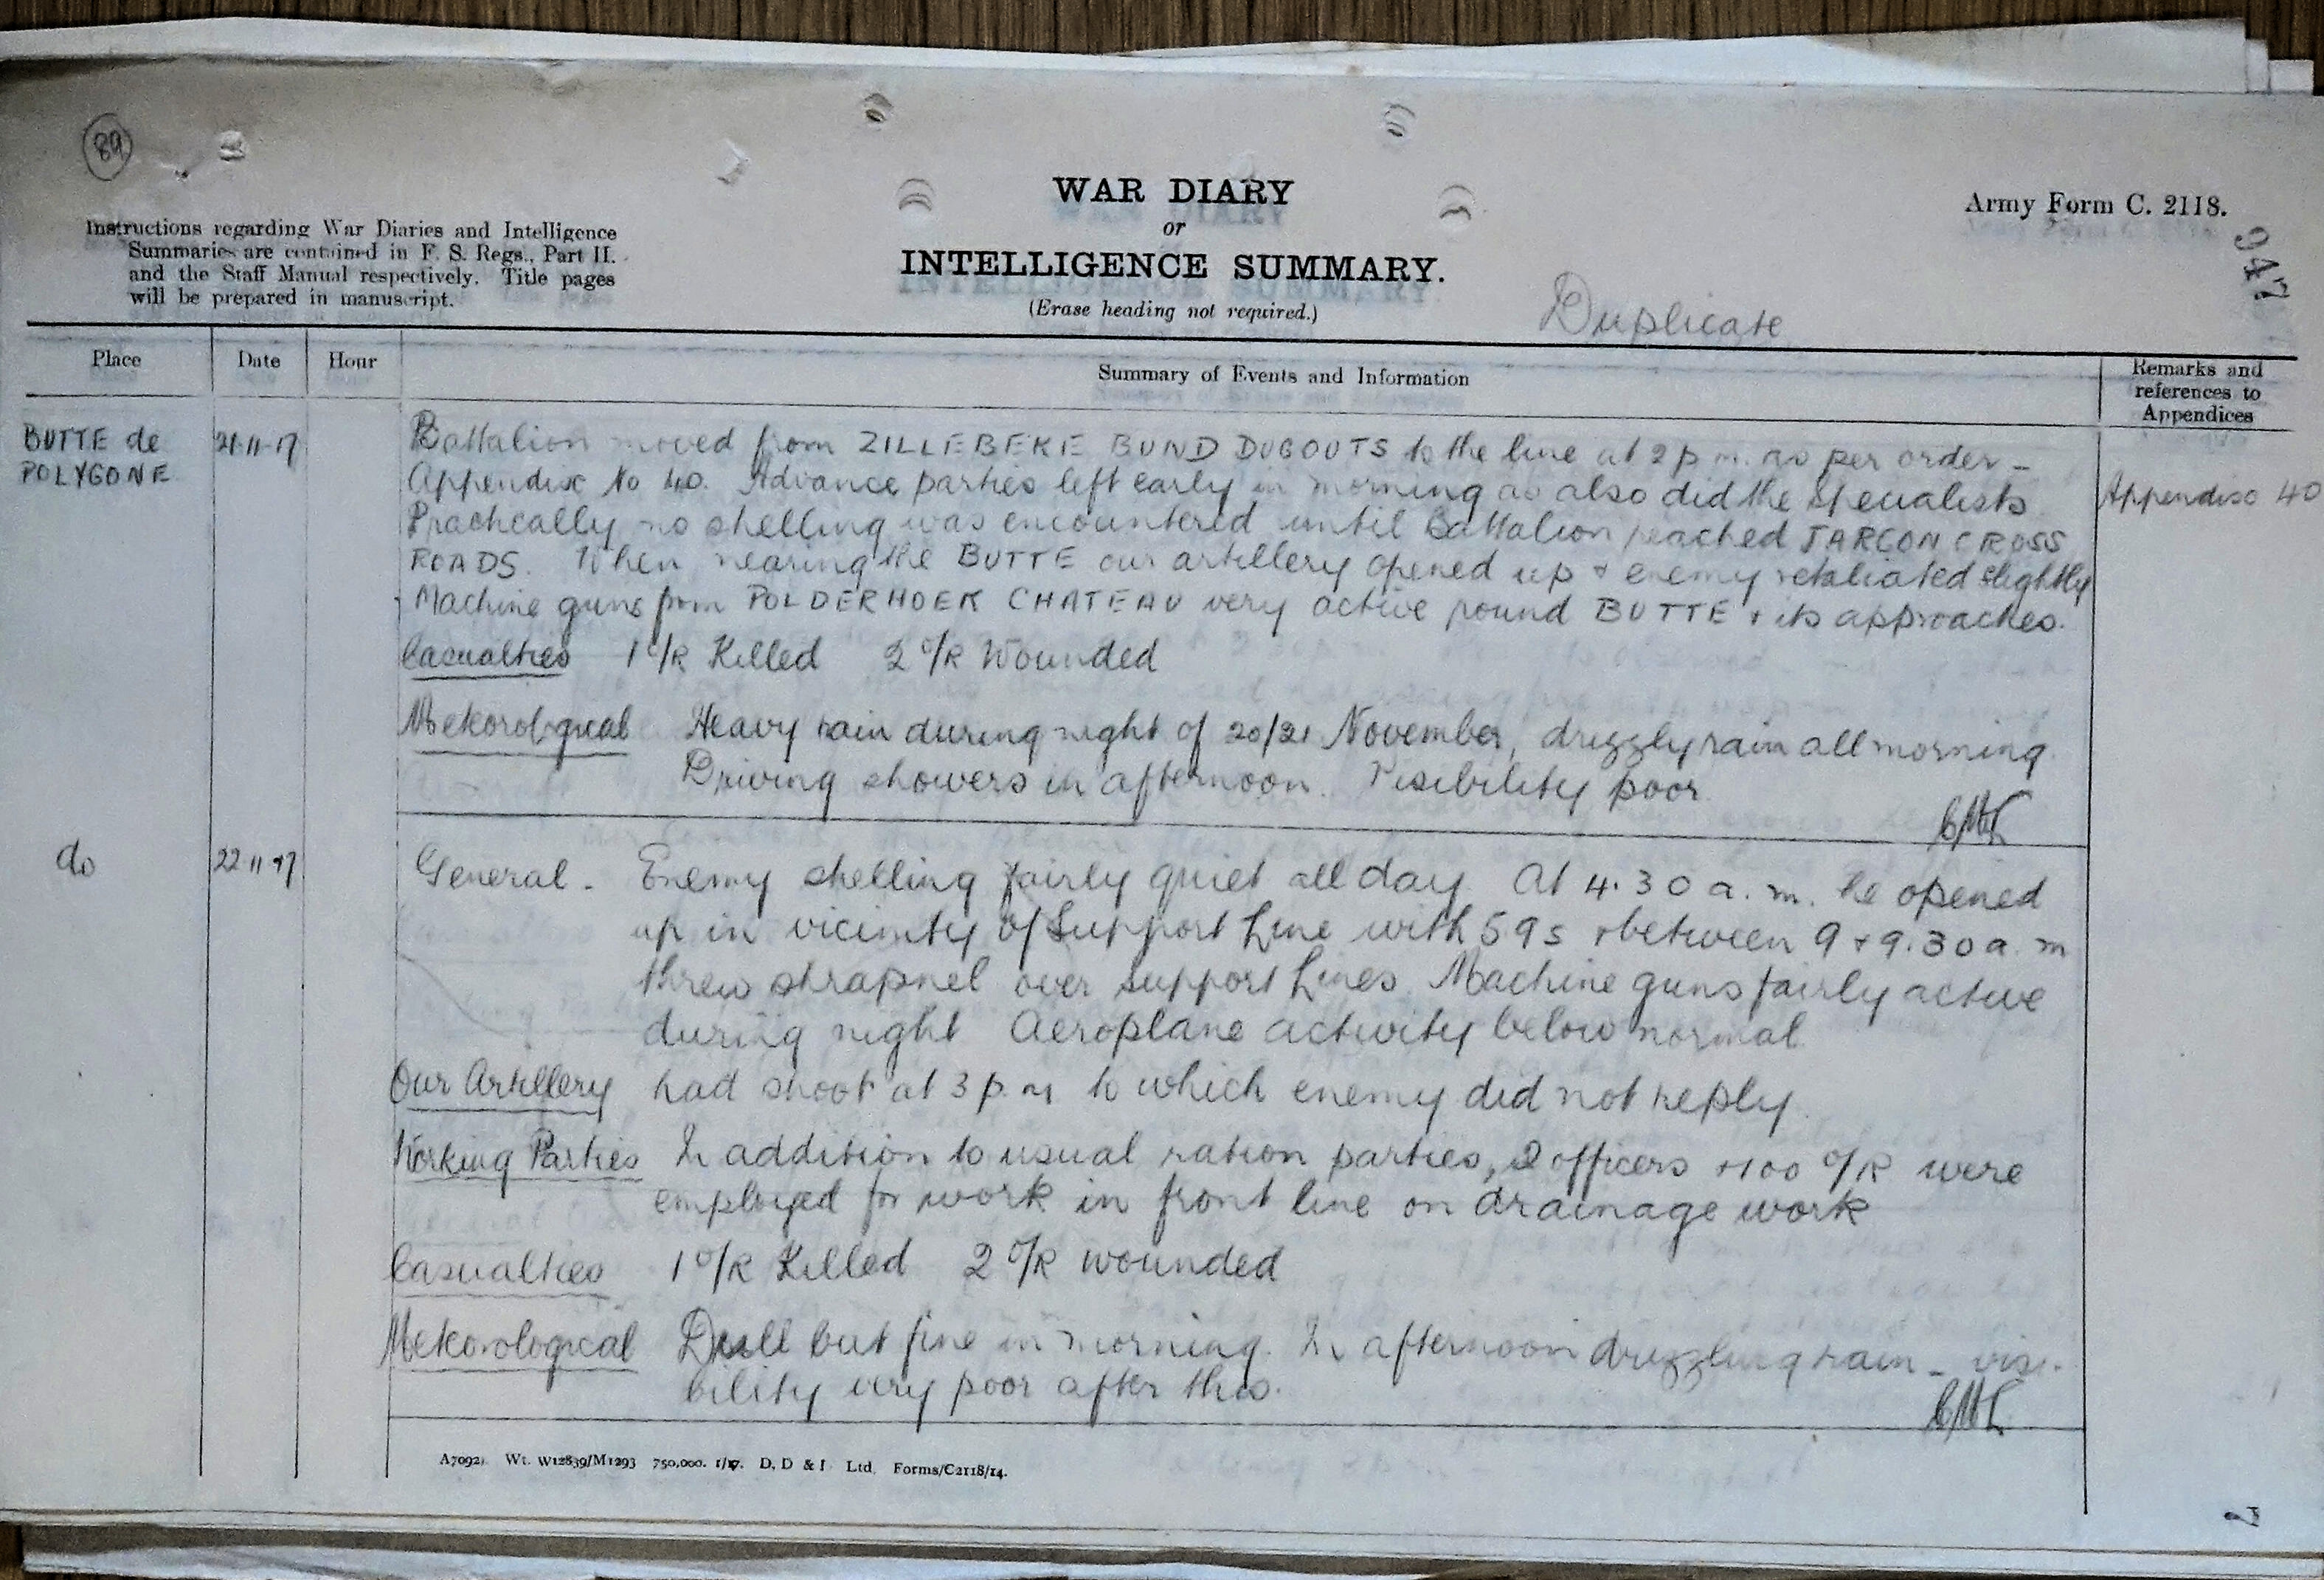 89
WAR DIARY
or
INTELLIGENCE SUMMARY.
(Erase heading not required.)
Army Form C. 2118.
947
Duplicate
Instructions regarding War Diaries and Intelligence
Summaries are contained in F. S. Regs., Part II.
and the Staff Manual respectively. Title pages
will be prepared in manuscript.
Place Date Hour Summary of Events and Information Remarks and
references to
Appendices
BUTTE de
POLYGONE
21-11-17
Battalion moved from ZILLEBEKE BUND DUGOUTS to the line at 2 p.m. as per order -
Appendix No 40. Advance parties left early in morning as also did the specialists
Practically no shelling was encountered until Battalion reached JARGON CROSS
ROADS. When nearing the BUTTE our artillery opened up + enemy retaliated slightly
Machine guns from POLDERHOEK CHATEAU very active round BUTTE + its approaches.
Appendix 40
Casualties 1 O/R Killed 2 O/R Wounded
Meteorological Heavy rain during night of 20/21 November, drizzly rain all morning.
Driving showers in afternoon. Visibility poor
do 22 11 17
General - Enemy shelling fairly quiet all day. At 4.30 a.m. he opened
up in vicinity of Support Line with 59s + between 9 + 9.30 a.m
threw shrapnel over support Lines. Machine guns fairly active
during night Aeroplane activity below normal.
Our Artillery had shoot at 3 p.m to which enemy did not reply.
Working Parties In addition to usual ration parties, 2 officers +100 O/R were
employed for work in front line on drainage work
Casualties 1 O/R Killed 2 O/R wounded
Meteorological Dull but fine in morning. In afternoon drizzling rain - visi-
bility very poor after this.
A7092. Wt. W12839/M1293 750,000. 1/17. D. D & L Ltd. Forms/C2118/14.